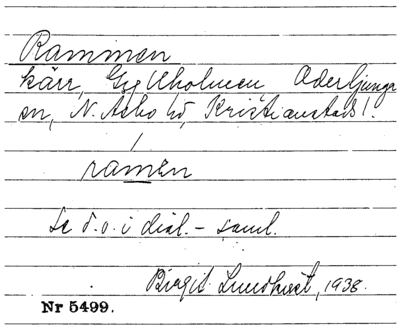 Rammen
kärr, Gyllholmen Oderljunga
sn, N. Åsbo hd, Kristianstads l.
ramen
Se d.o. i dial.-saml.
Birgit Lundkvist, 1938.
Nr 5499.